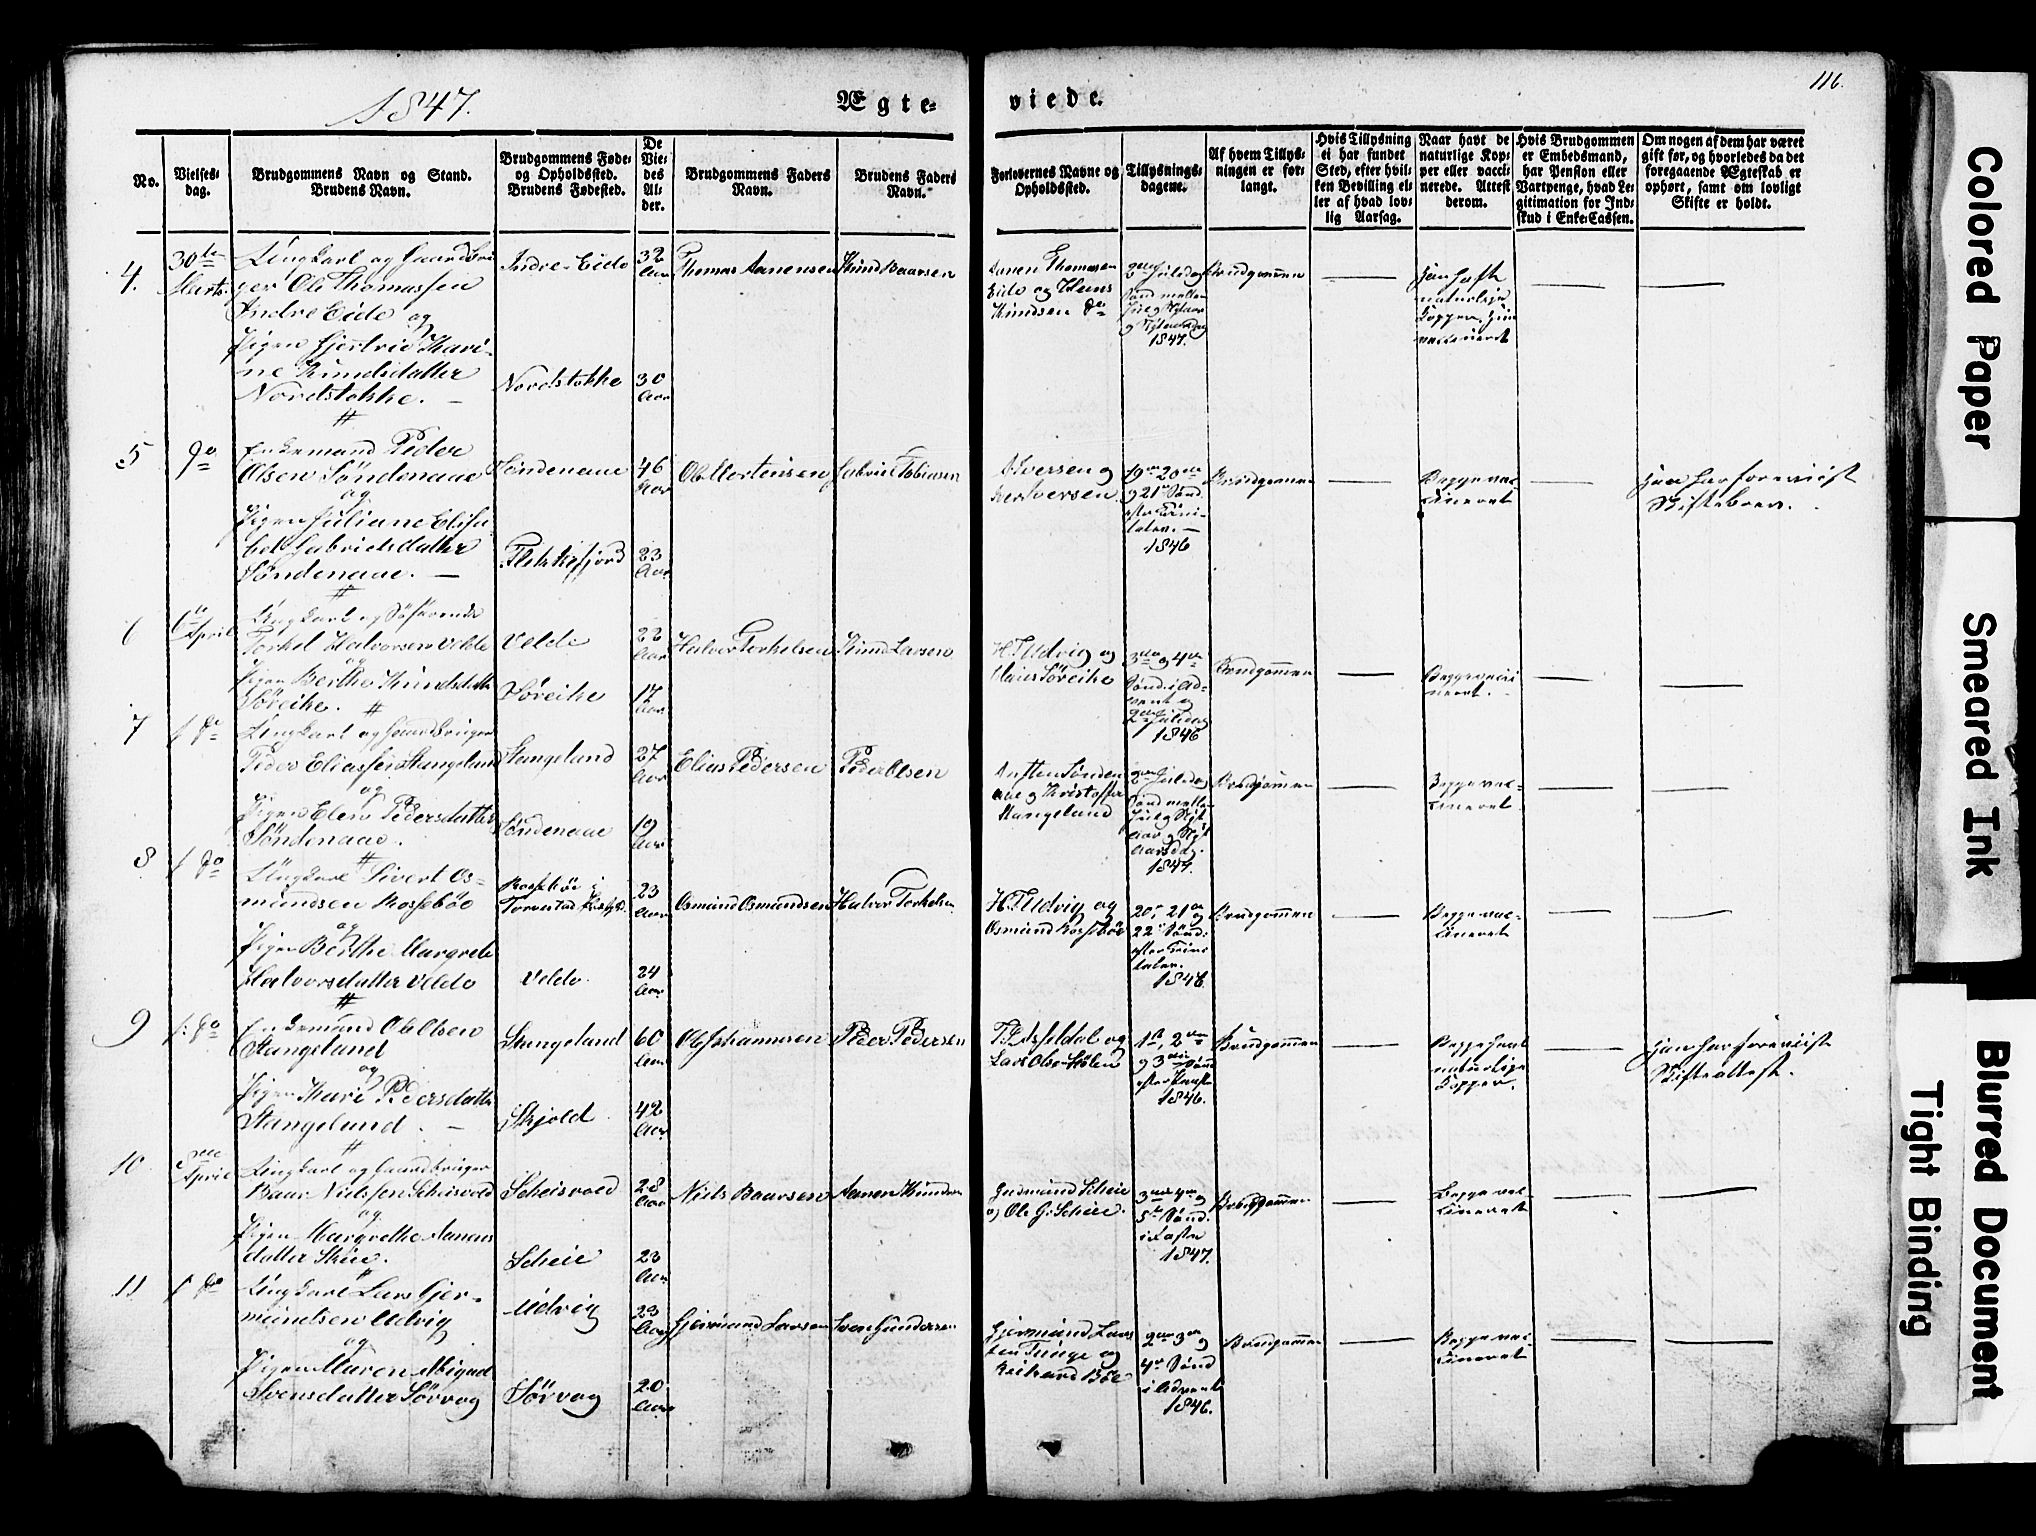 1847.
Ægte-
viede.
116.
No.
Vielses-
dag.
Brudgommens Navn og Stand.
Brudens Navn.
Brudgommens Føde-
og Opholdssted.
Brudens Fødested.
De
Vie-
des
Al-
der.
Brudgommens Faders
Navn.
Brudens Faders
Navn.
Forlovernes Navne og
Opholdssted.
Tillysnings-
dagene.
Af hvem Tillys-
ningen er for-
langt.
Hvis Tillysning
ei har fundet
Sted, efter hvil-
ken Bevilling el-
ler af hvad lov-
lig Aarsag.
Naar havt de
naturlige Kop-
per eller vacci-
nerede. Attest
derom.
Hvis Brudgommen
er Embedsmand,
har Pension eller
Vartpenge, hvad Le-
gitimation for Ind-
skud i Enke-Cassen.
Om nogen af dem har været
gift før, og hvorledes da det
foregaaende Ægteskab er
ophørt, samt om lovligt
Skifte er holdt.
4.
30te
Marts
Ungkarl og Gaardbru-
ger Ole Thomassen
Indre Eide og
Pigen Gjertrud Kari-
ne Knudsdatter
Nordstokke. —
Indre-Eide
Nordstokke
32
Aar
30
Aar
Thomas Aanensen
Knud Baarsen
Aanen Thomassen
Eide og Hans
Knudsen do
2den Juledag
Sønd. mellem
Juul og Nytaar
og Nytaarsdag
1847.
Brudgommen
Han havt
naturlige
Kopper, hun
vaccineret
5
do
Enkemand Peder
Olsen Søndenaae
og
Pigen Juliane Elisa-
bet Gabrielsdatter
Søndenaae. —
Søndenaae
Flekkefjord
46
Aar
23
Aar
Ole Mortensen
Gabriel Tobiasen
Iversen og
Iversen
19de 20de
og 21de Sønd.
efter Trini-
tatis. —
1846
Brudgommen
Begge vac-
cineret
Han har foreviist
Skiftebrev.
6
6te
April
Ungkarl og Søfarende
Torkel Halvorsen Velde
og
Pigen Berthe Knudsdatter
Søreike.
Velde
Søreike
22
Aar
17
Aar
Halvor Torkelsen
Knud Larsen
H. T. Udvig og
Søreike
3die og 4de
Sønd. i Ad-
vent og
2den Juledag
1846
Brudgommen
Begge vacci-
neret.
7
f do
Ungkarl og Gaardbruger
Peder Eliassen Stangeland
og
Pigen Elen Pedersdatter
Søndenaae.
Stangeland
Søndenaae
27
Aar
19
Aar
Elias Pedersen
Peder Olsen
Austen Sønden-
aae og Kristofer
Stangeland
2den Juledag
Sønd. mellem
Juul og Nyt-
aar og Nyt-
aarsdag.
1847.
Brudgommen
Begge vac-
cineret
8
f do
Ungkarl Sivert Os-
mundsen Rossebøe
og
Pigen Berthe Margrete
Halvorsdatter Velde
Rossebøe i
Torvestad
Velde.
23
Aar
24
Aar
Osmund Osmundsen
Halvor Torkelsen
H. T. Udvig og
Osmund Rossebøe
20de 21de og
22de Sønd.
efter Trini-
tatis.
1846
Brudgommen
Begge vac-
cineret
9
f: do
Enkemand Ole Olsen
Stangeland
og
Pigen Kari Pedersdatter
Stangeland. —
Stangeland
Skjold
60
Aar
42
Aar
Ole Johannesen
Peder Pedersen
og
Lars Olsen
1ste, 2den
og 3die Sønd.
efter Paaske
1846.
Brudgommen
Begge havt
naturlige
Kopper.
Han har foreviist
Skifteattest.
10
April
Ungkarl og Gaardbruger
Baar Nielssen Scheisvold
og
Pigen Margrethe Aanens-
datter Skeie.
Scheisvold
Scheie
28
Aar
23
Aar
Niels Baarsen
Aanen Knudsen
Gudmund Scheie
og Ole G. Scheie.
3die 4de og
5te Sønd.
i Faste
1847.
Brudgommen
Begge vac-
cineret
11
f do
Ungkarl Lars Gjer-
mundsen Udvig
og
Pigen Maren Abigael
Svensdatter Sørvog
Udvig
Sørvog
23
Aar
20
Aar
Gjermund Larsen
Sven Gundersen
Gjermund Lars-
sen og
Bøe
2den 3die og
4de Sønd.
i Advent
1846.
Brudgommen
Begge vac-
cineret
Colored Paper
Smeared Ink
Blurred Document
Tight Binding